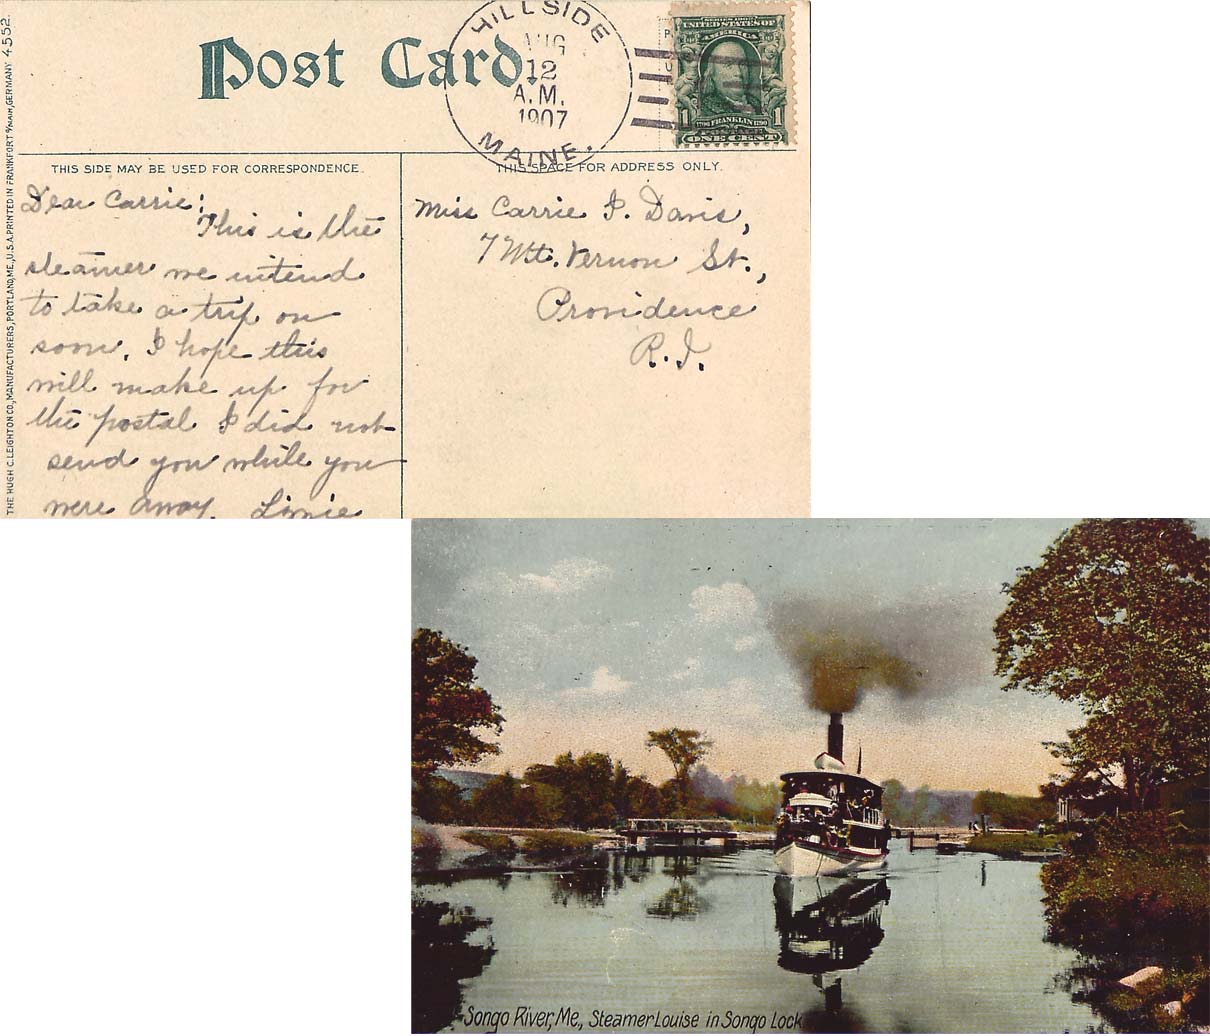 Post Card.
HILLSIDE
AUG
12
A.M.
1907
MAINE.
SERIES 1902
UNITED STATES OF
AMERICA
1 1706 FRANKLIN 1790 1
POSTAGE
ONE CENT
THE HUGH C. LEIGHTON CO., MANUFACTURERS, PORTLAND, ME., U.S.A. PRINTED IN FRANKFORT %MAIN, GERMANY 4552.
THIS SIDE MAY BE USED FOR CORRESPONDENCE.
THIS SPACE FOR ADDRESS ONLY.
Dear Carrie:
This is the
steamer we intend
to take a trip on
soon. I hope this
will make up for
the postal I did not
send you while you
were away. Linie
Miss Carrie I. Davis,
7 Mt. Vernon St.,
Providence
R.I.
Songo River, Me., Steamer Louise in Songo Lock